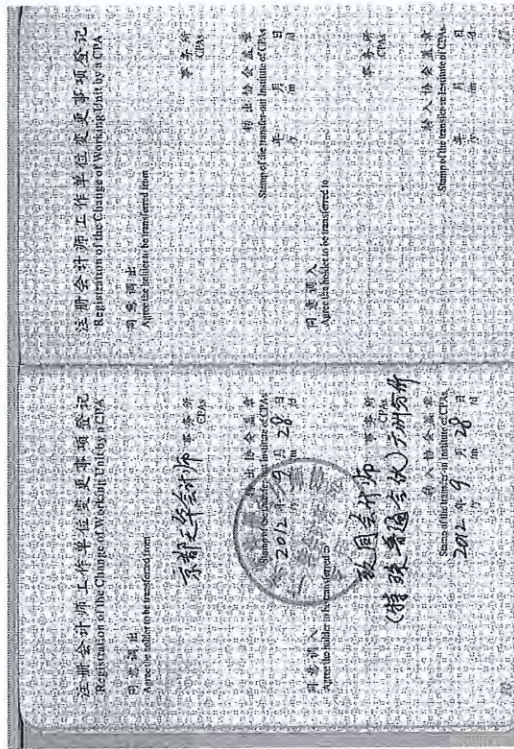 注册会计师工作单位变更事项登记
Registration of the Change of Working Unit by a CPA
同意调出
Agree the holder to be transferred from
京都天华会计师 事务所
CPAs
转出协会盖章
Stamp of the transfer-out Institute of CPAs
2012年9月28日
/y /m /d
同意调入
Agree the holder to be transferred to
致同会计师 事务所
CPAs
(特殊普通合伙)
转入协会盖章
Stamp of the transfer-in Institute of CPAs
2012年9月28日
/y /m /d
10
注册会计师工作单位变更事项登记
Registration of the Change of Working Unit by a CPA
同意调出
Agree the holder to be transferred from
事务所
CPAs
转出协会盖章
Stamp of the transfer-out Institute of CPAs
年 月 日
/y /m /d
同意调入
Agree the holder to be transferred to
事务所
CPAs
转入协会盖章
Stamp of the transfer-in Institute of CPAs
年 月 日
/y /m /d